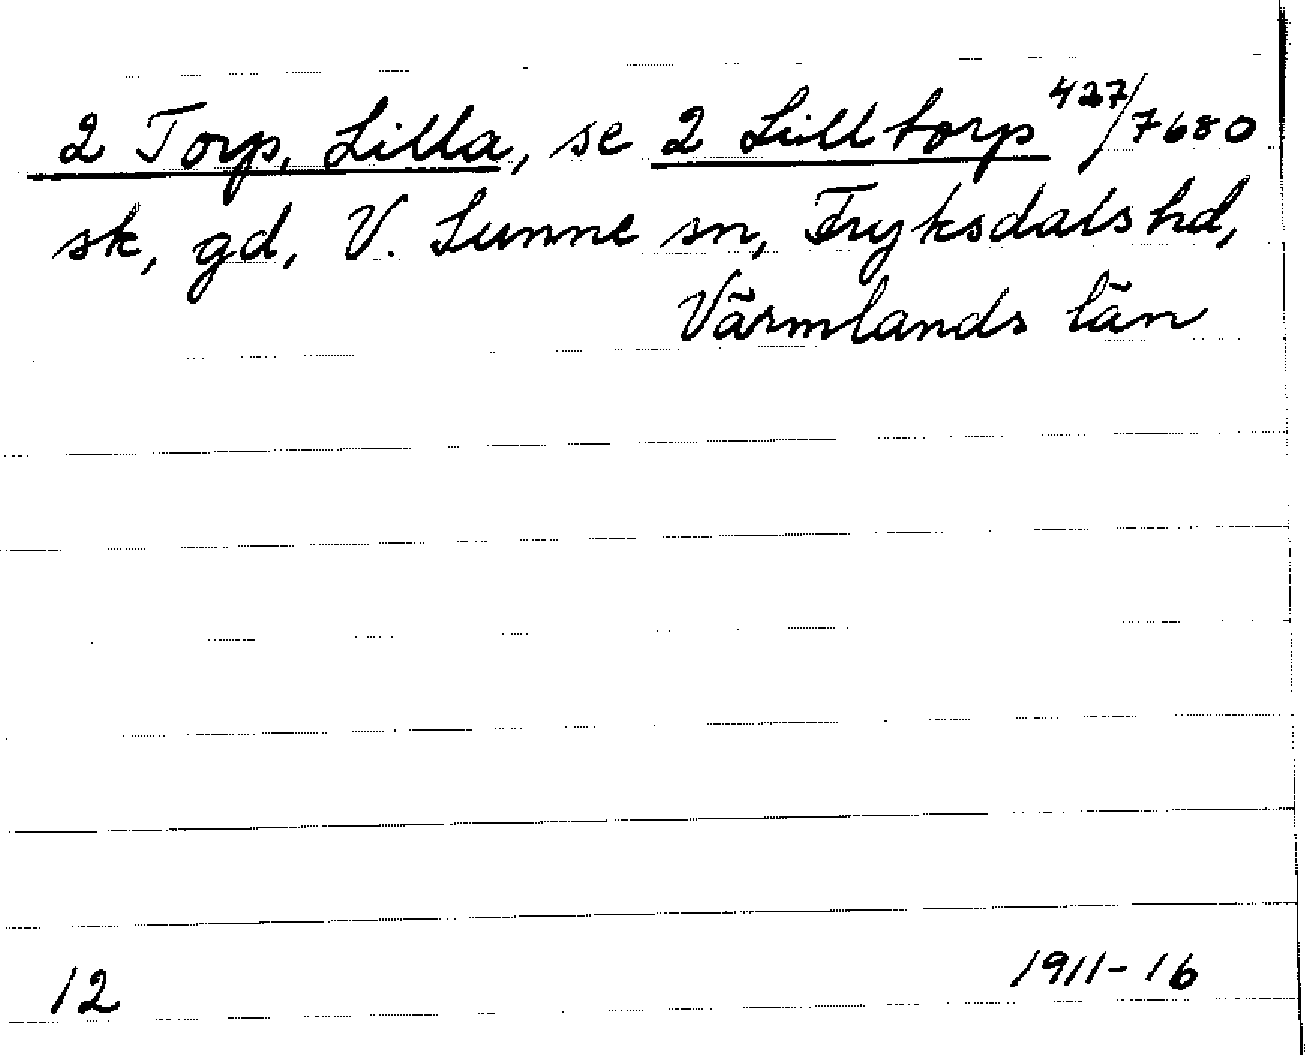 2 Torp, Lilla, se 2 Lilltorp 427/7680
sk, gd, V. Sunne sn, Fryksdals hd,
Värmlands län
12 1911-16